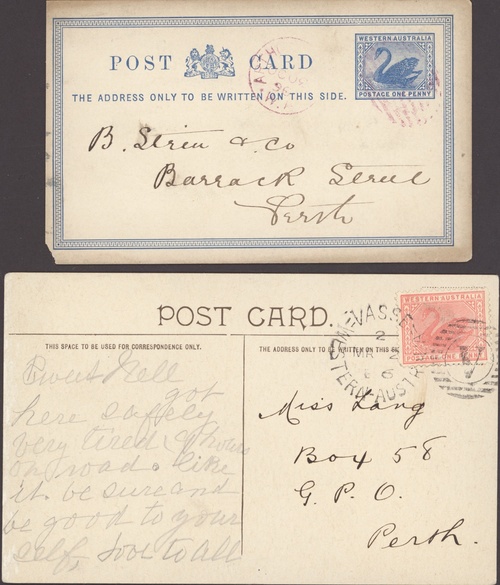 WESTERN AUSTRALIA
POST CARD
POSTAGE ONE PENNY
THE ADDRESS ONLY TO BE WRITTEN ON THIS SIDE.
B. Strien & Co
Barrack Street
Perth
POST CARD.
WESTERN AUSTRALIA
POSTAGE ONE
VASSE
2
MR
6
WESTERN-AUSTR
THIS SPACE TO BE USED FOR CORRESPONDENCE ONLY.
THE ADDRESS ONLY TO BE WRITTEN ON THIS
Sweet Nell
got
here safely
very tired 9 hours
on road. like
it. be sure and
be good to your
self, love to all
Miss Lang
Box 58
G. P. O.
Perth.